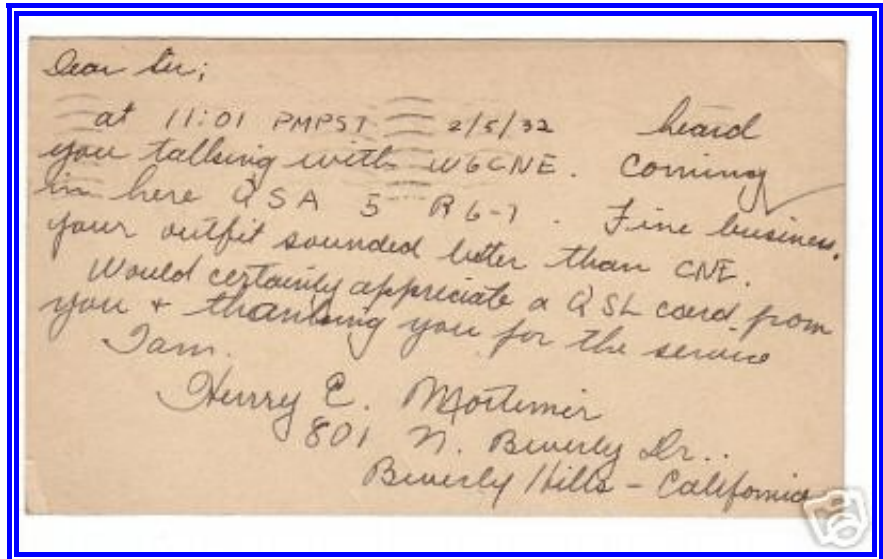 Dear Sir;
at 11:01 PMPST 2/5/32 heard
you talking with W6CNE. Coming
in here QSA 5 R6-7. Fine business,
your outfit sounded better than CNE.
Would certainly appreciate a QSL card from
you & thanking you for the service
I am.
Henry C. Mortimer
801 N. Beverly Dr..
Beverly Hills - California